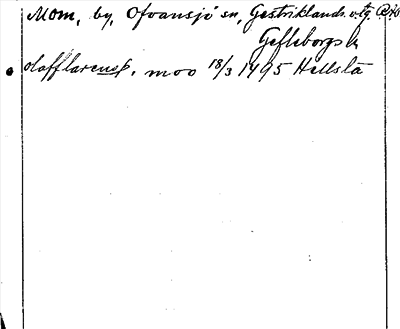 Mom, by, Ofvansjö sn, Gestriklands v. tg.
Gefleborgs l.
olafflarenss. moo 18/3 1495 Hellsta